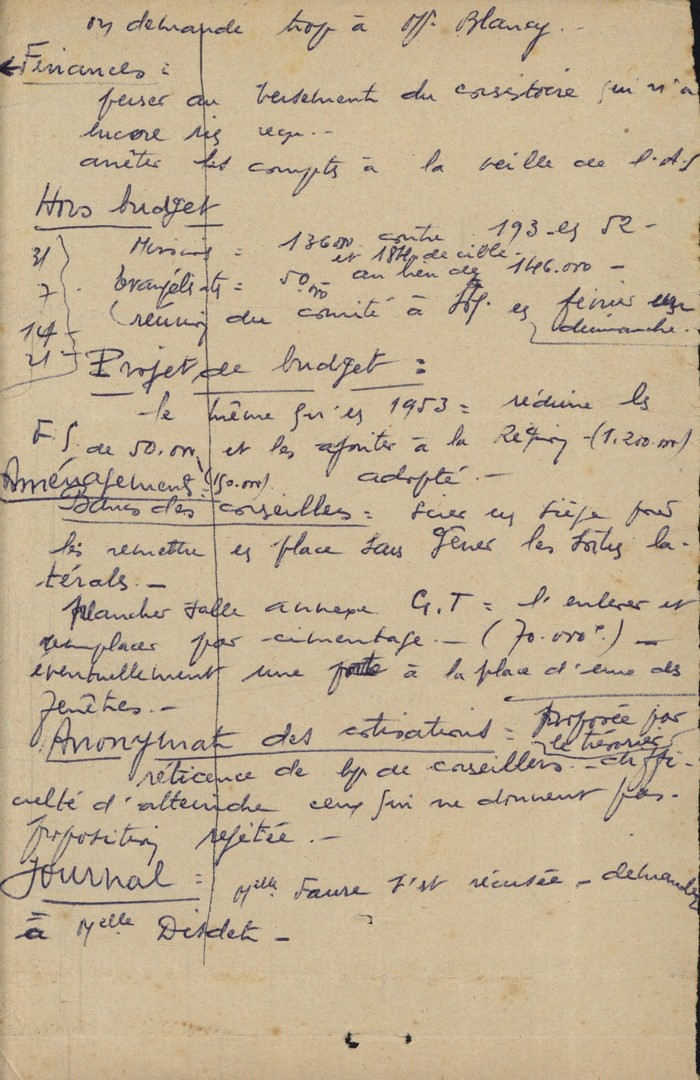 on demande trop à off. Blancy. -
Finances =
penser au versement du consistoire qui n'a
encore rien reçu. -
arrêter les comptes à la veille de l'A.G
Hors budget
31 Missions = 136000 contre 193 en 52 -
et 18
7 Evangélisat = 50.00 au lieu de 146.000 -
(réunion du comité à en février un
14 - dimanche.
21 - Projet de budget =
le même qu'en 1953 = réduire les
F.G. de 50.000 et les ajouter à la Région - (1.200.000)
Aménagements = (150.000) adopté. -
Bancs des conseillers = scier un siège pour
les remettre en place sans gêner les sorties la-
térales. -
plancher salle annexe G.T = l'enlever et
remplacer par cimentage. - (70.000F.) -
éventuellement une porte à la place d'une des
fenêtres. -
Anonymat des cotisations = proposée par
le trésorier
réticence de bp de conseillers - diffi-
culté d'atteindre ceux qui ne donnent pas.
proposition rejetée. -
Journal = Melle Faure s'est récusée - demander
à Melle Disdet -